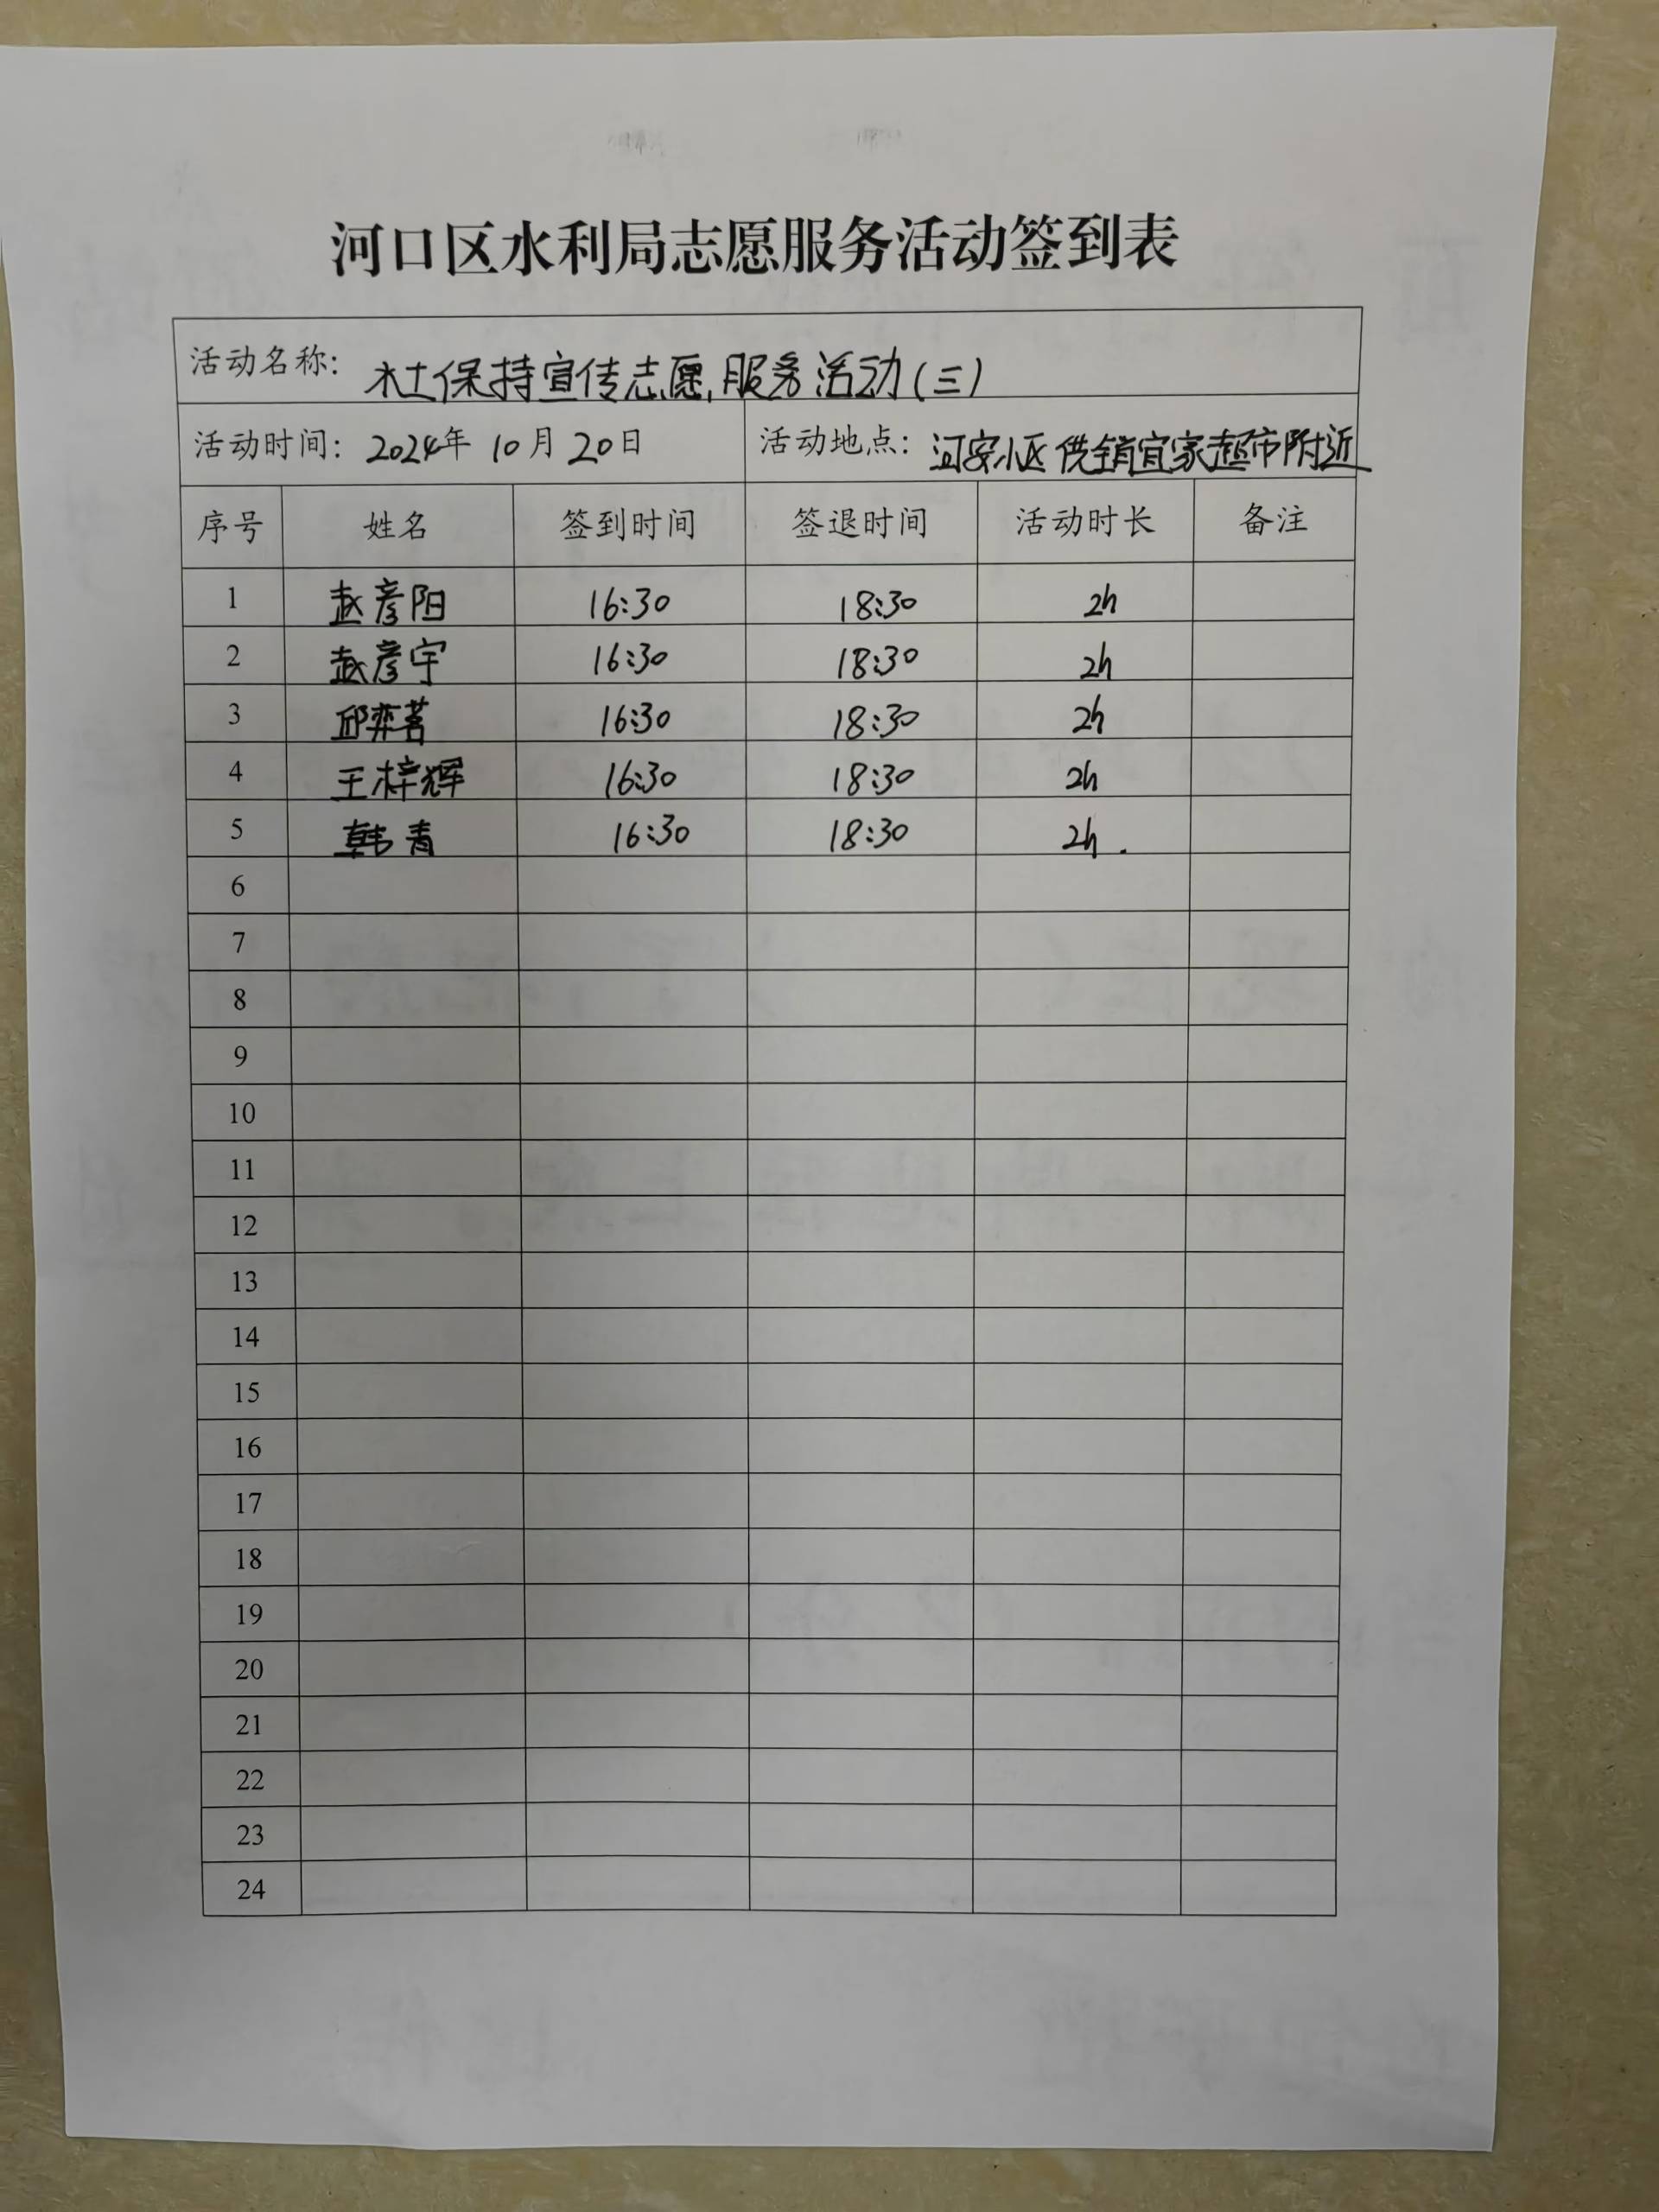 河口区水利局志愿服务活动签到表
活动名称：水土保持宣传志愿服务活动（三）
活动时间：2024年10月20日 活动地点：河安小区供销宜家超市附近
序号 姓名 签到时间 签退时间 活动时长 备注
1 赵彦阳 16:30 18:30 2h
2 赵彦宇 16:30 18:30 2h
3 邱弈茗 16:30 18:30 2h
4 王梓辉 16:30 18:30 2h
5 韩青 16:30 18:30 2h.
6
7
8
9
10
11
12
13
14
15
16
17
18
19
20
21
22
23
24